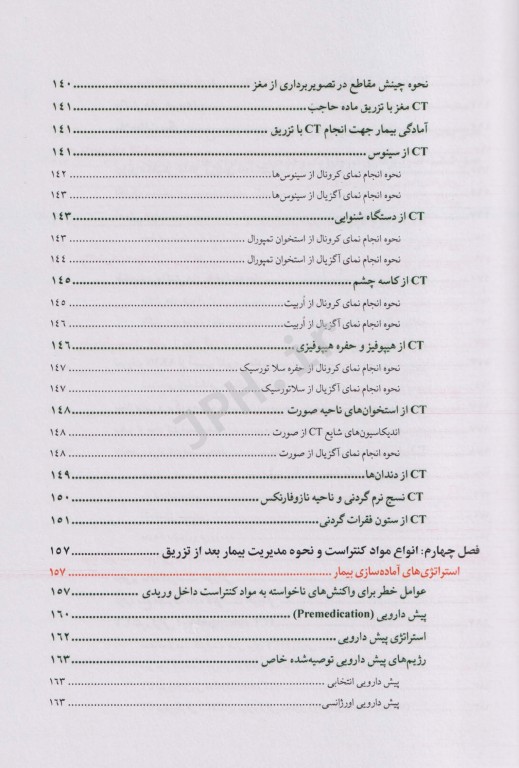 نحوه چینش مقاطع در تصویربرداری از مغز ................ ۱۴۰
CT مغز با تزریق ماده حاجب ................ ۱۴۱
آمادگی بیمار جهت انجام CT با تزریق ................ ۱۴۱
CT از سینوس ................ ۱۴۱
نحوه انجام نمای کرونال از سینوس‌ها ................ ۱۴۲
نحوه انجام نمای آگزیال از سینوس‌ها ................ ۱۴۳
CT از دستگاه شنوایی ................ ۱۴۳
نحوه انجام نمای کرونال از استخوان تمپورال ................ ۱۴۳
نحوه انجام نمای آگزیال از استخوان تمپورال ................ ۱۴۴
CT از کاسه چشم ................ ۱۴۵
نحوه انجام نمای کرونال از اُربیت ................ ۱۴۵
نحوه انجام نمای آگزیال از اُربیت ................ ۱۴۶
CT از هیپوفیز و حفره هیپوفیزی ................ ۱۴۶
نحوه انجام نمای کرونال از حفره سلا تورسیک ................ ۱۴۷
نحوه انجام نمای آگزیال از سلاتورسیک ................ ۱۴۷
CT از استخوان‌های ناحیه صورت ................ ۱۴۸
اندیکاسیون‌های شایع CT از صورت ................ ۱۴۸
نحوه انجام نمای آگزیال از صورت ................ ۱۴۸
CT از دندان‌ها ................ ۱۴۹
CT نسج نرم گردنی و ناحیه نازوفارنکس ................ ۱۵۰
CT از ستون فقرات گردنی ................ ۱۵۱
فصل چهارم: انواع مواد کنتراست و نحوه مدیریت بیمار بعد از تزریق ................ ۱۵۷
استراتژی‌های آماده‌سازی بیمار ................ ۱۵۷
عوامل خطر برای واکنش‌های ناخواسته به مواد کنتراست داخل وریدی ................ ۱۵۷
پیش دارویی (Premedication) ................ ۱۶۰
استراتژی پیش دارویی ................ ۱۶۲
رژیم‌های پیش دارویی توصیه‌شده خاص ................ ۱۶۳
پیش دارویی انتخابی ................ ۱۶۳
پیش دارویی اورژانسی ................ ۱۶۳
JPH.ir